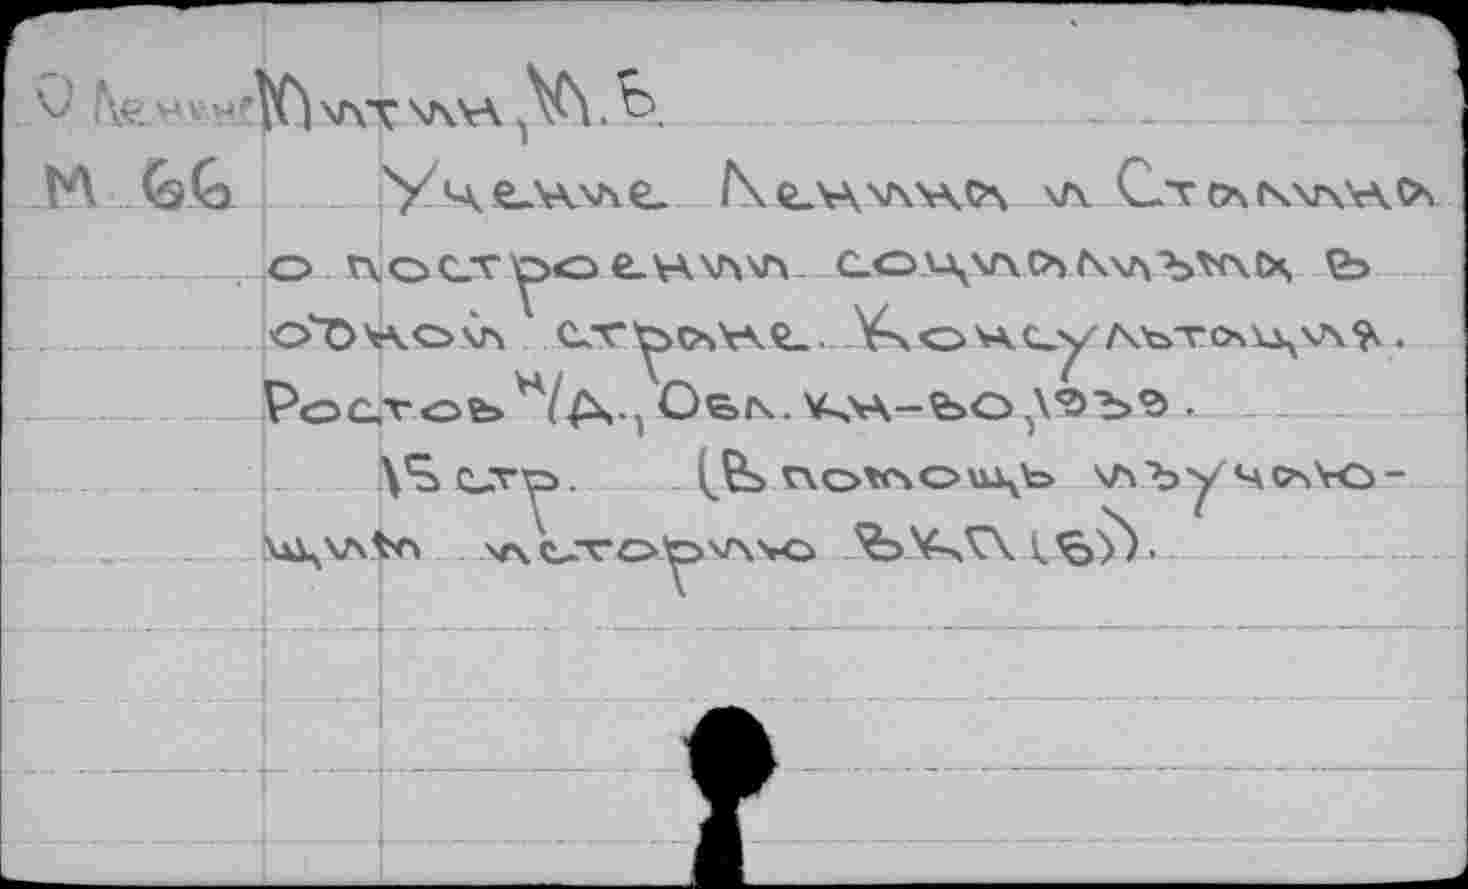 О Ленин Митин, М.Б.
М 66 Учение Ленина и Сталина
о построении социализма в
одной стране. Консультация.
Ростов н/Д., Обл. кн-во, 1939.
15 стр. (В помощь изучаю-
щим историю ВКП(б)).